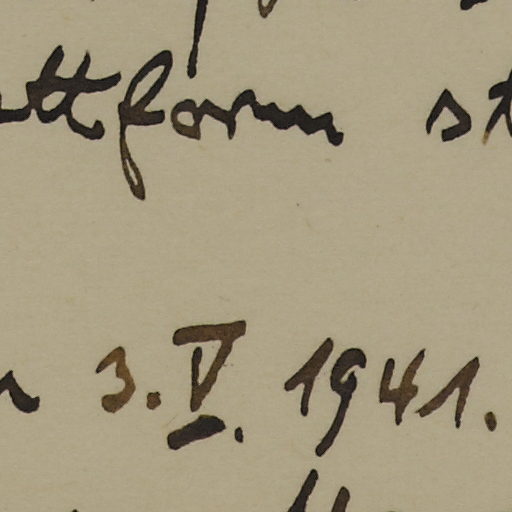 attform st
3. V. 1941.